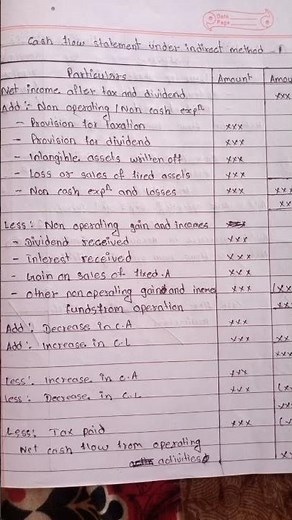 Date
Page
Cash flow statement under indirect method
Particulars Amount Amou
Net income after tax and dividend xxx
Add: Non operating / Non cash expn
- Provision for Taxation xxx
- Provision for dividend xxx
- Intangible assets written off xxx
- Loss or sales of fixed assets xxx
- Non cash expn and losses xxx xxx
xx
Less: Non operating gain and incomes
- Dividend received xxx
- Interest received xxx
- Gain on sales of fixed.A xxx
- other non operating gain and incme (xx
funds from operation xx
Add: Decrease in C.A xxx
Add: Increase in C.L xxx xx
xxx
Less: Increase in C.A xxx
Less: Decrease in C.L xxx (x
xx
Less: Tax paid xxx (x
Net cash flow from operating
activities x